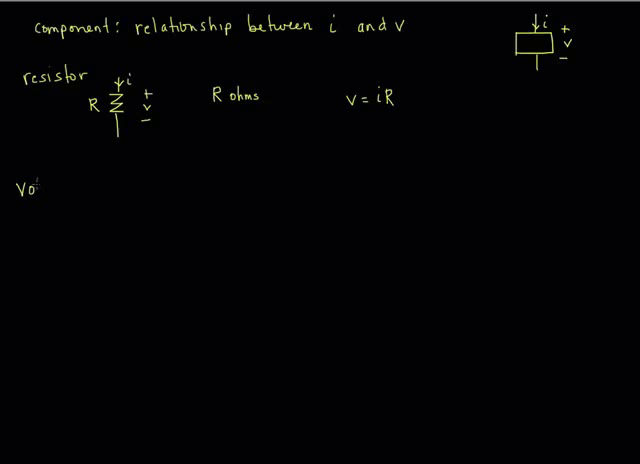 component: relationship between i and v
i
+
v
-
resistor
i
R
+
v
-
R ohms
v = iR
vo